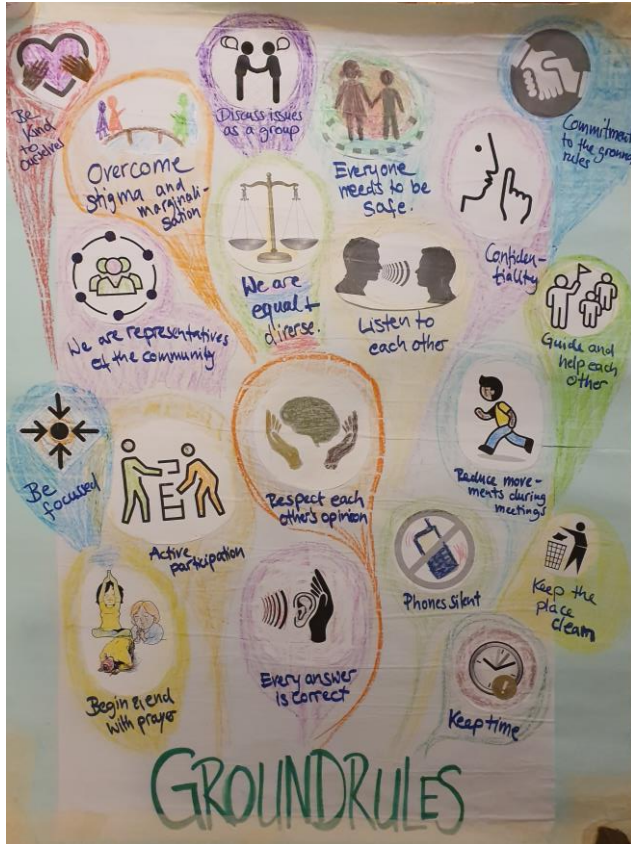 Be
kind
to
ourselves
Overcome
stigma and
marginali-
sation
Discuss issues
as a group
Everyone
needs to be
safe.
Commitment
to the ground
rules
Confiden-
tiality
We are
equal +
diverse.
Listen to
each other
We are representatives
of the community
Guide and
help each
other
Be
focussed
Active
participation
Respect each
other's opinion
Reduce move-
ments during
meetings
Phones silent
Keep the
place
clean
Begin & end
with prayer
Every answer
is correct
Keep time
GROUNDRULES